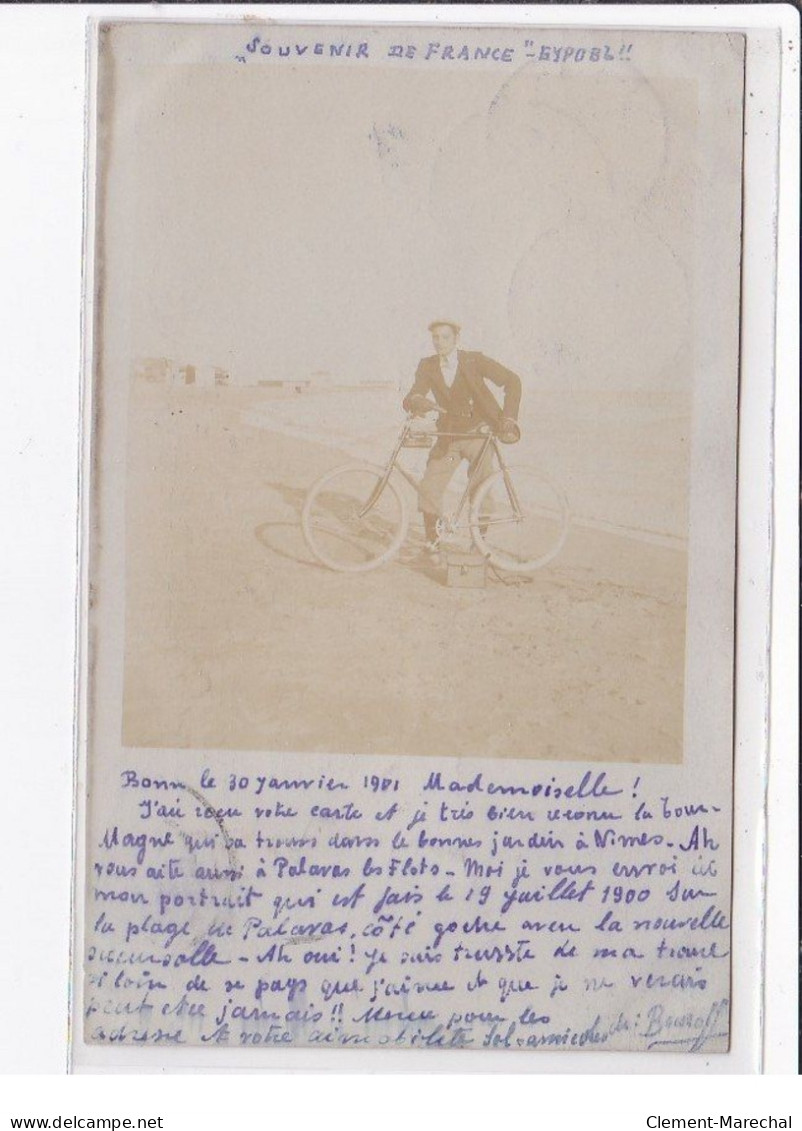 "SOUVENIR DE FRANCE"-
Bonn le 30 Janvier 1901 Mademoiselle!
J'ai recu votre carte et je très bien reconu la Tour-
Magne qui sa trouve dans le bonnes jardin à Nimes- Ah
vous aite aussi à Palavas les Flots- Moi je vous envoi
mon portrait qui est fais le 19 Juillet 1900 sur
la plage de Palavas, côté goche aven la nouvelle
- Ah oui! je suis de ma
si loin de se pays que j'aime et que je ne verais
peut etre jamais!! pour les
adresse et votre aimabilité
Clement-Marechal
delcampe.net